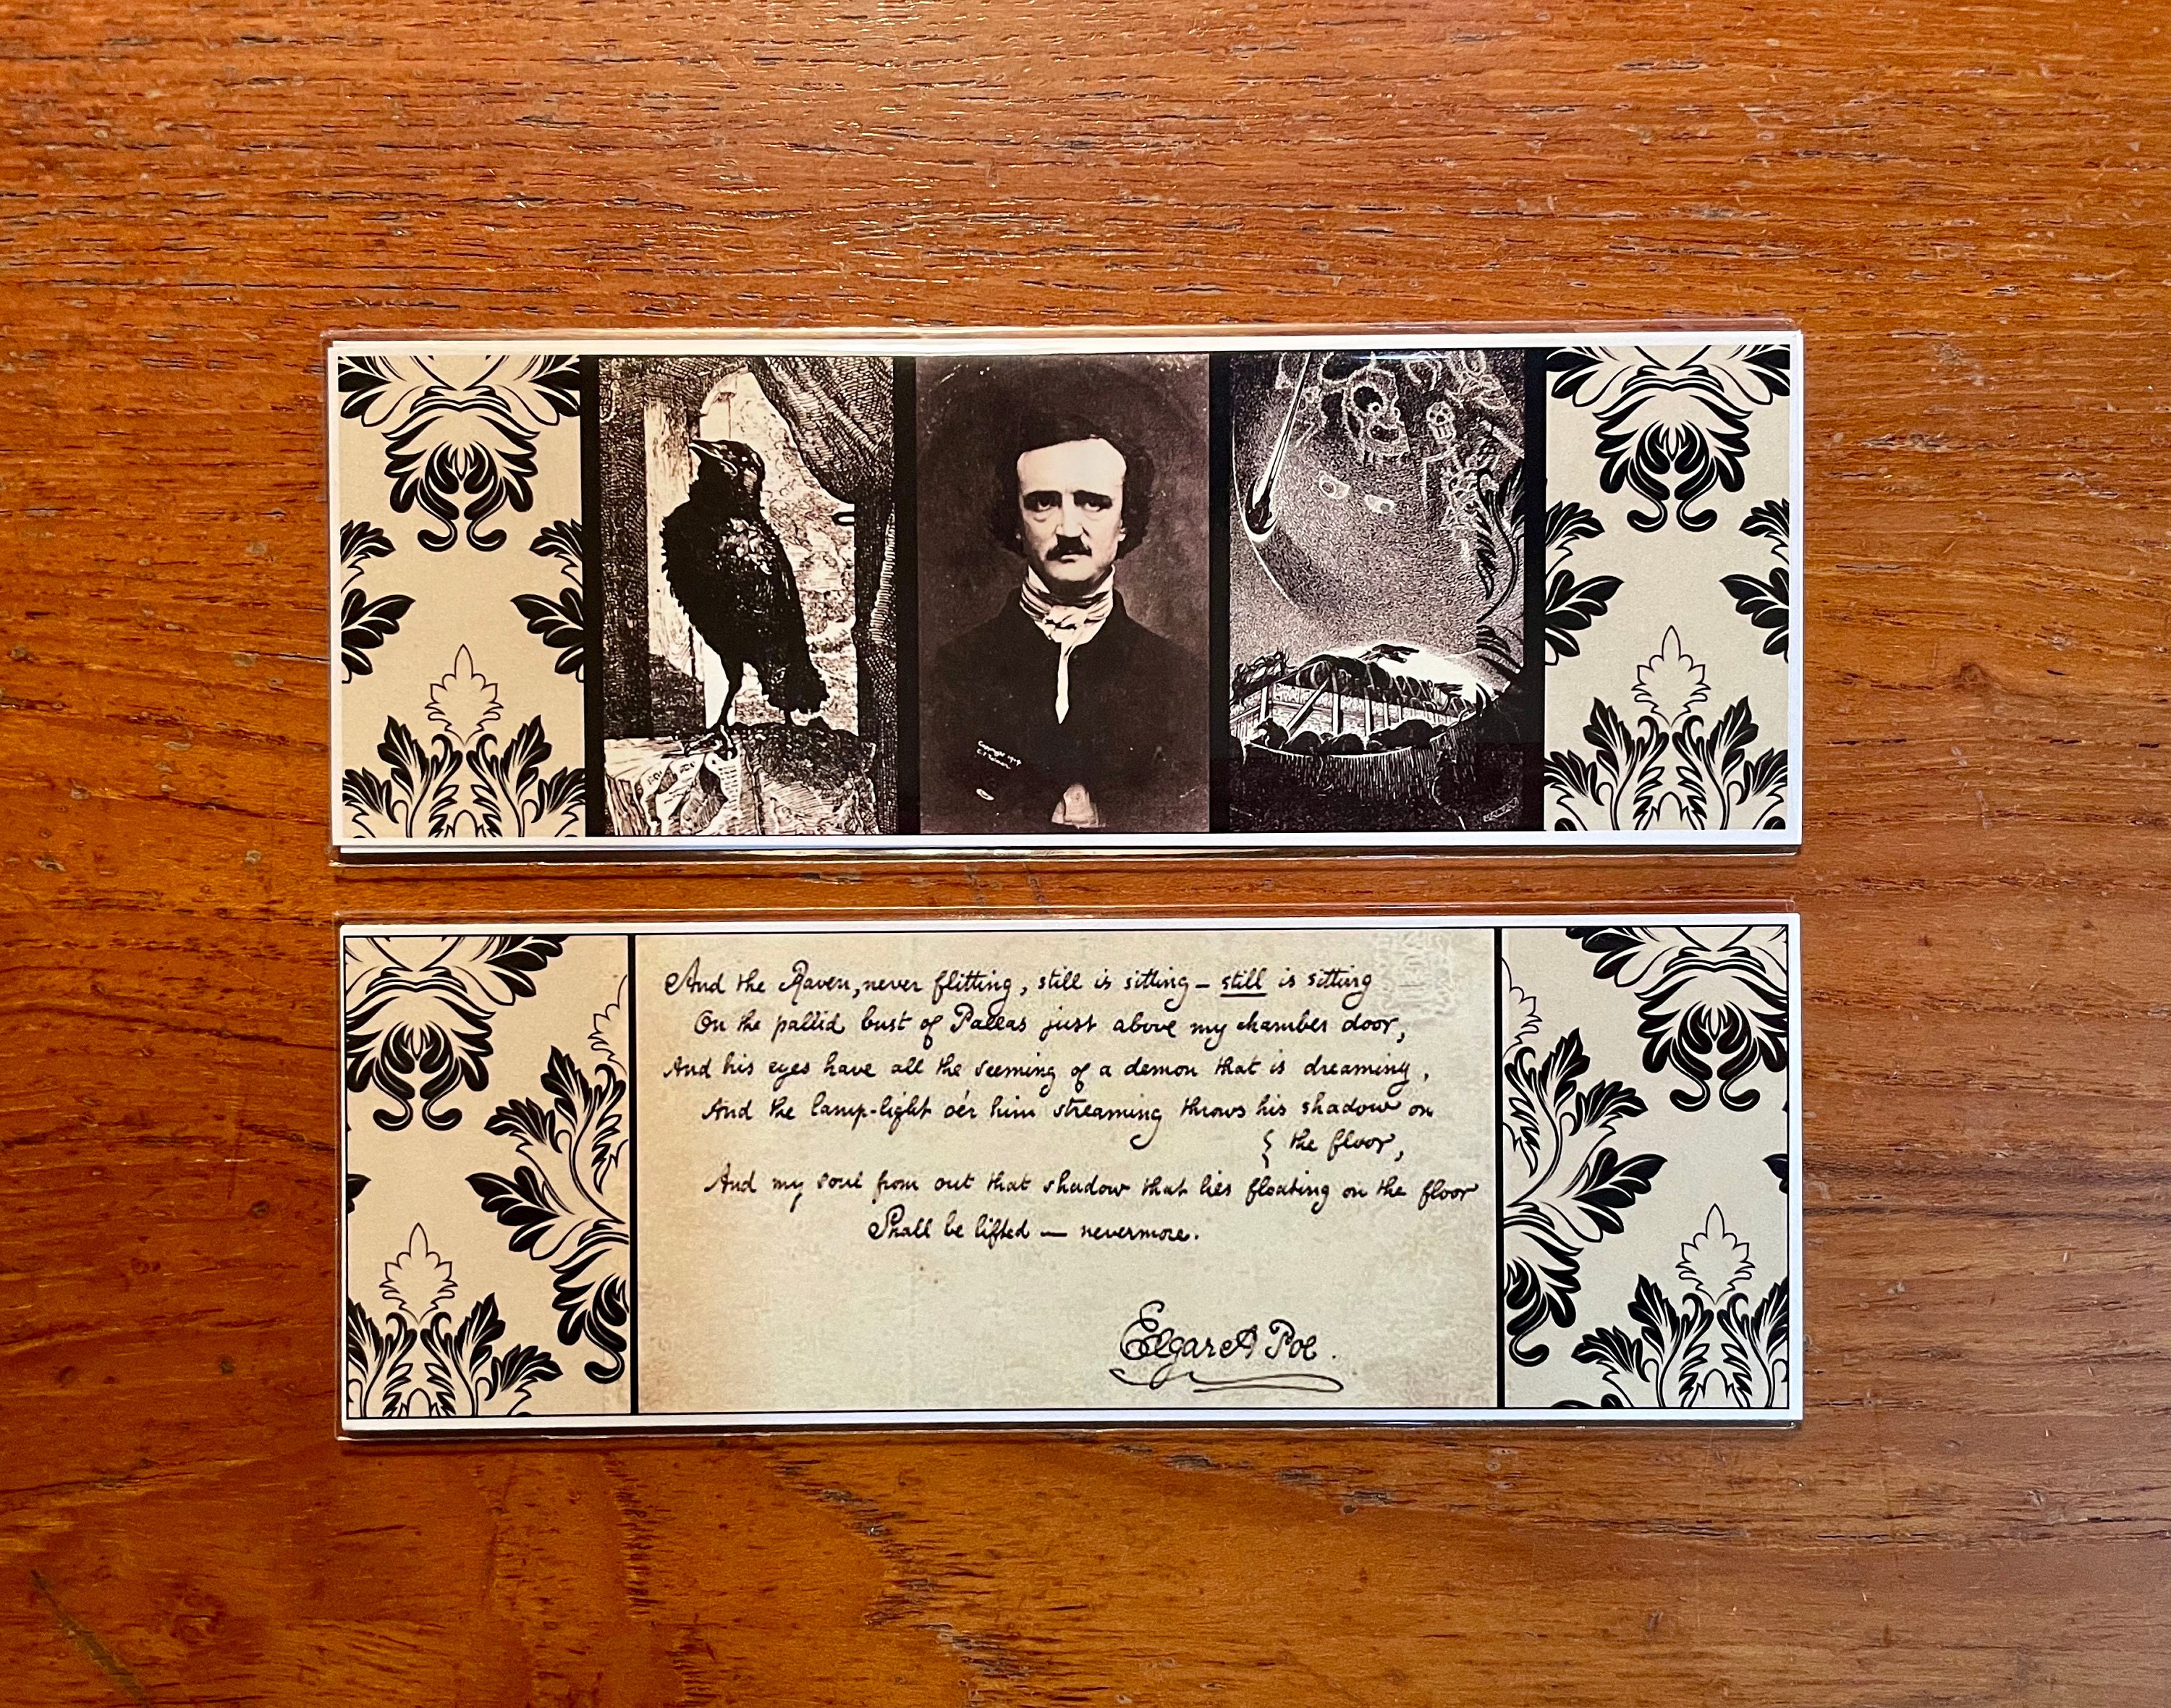 Copyright 1904
And the Raven, never flitting, still is sitting — still is sitting
On the pallid bust of Pallas just above my chamber door,
And his eyes have all the seeming of a demon that is dreaming,
And the lamp-light o'er him streaming throws his shadow on
{ the floor,
And my soul from out that shadow that lies floating on the floor
Shall be lifted — nevermore.
Edgar A Poe.